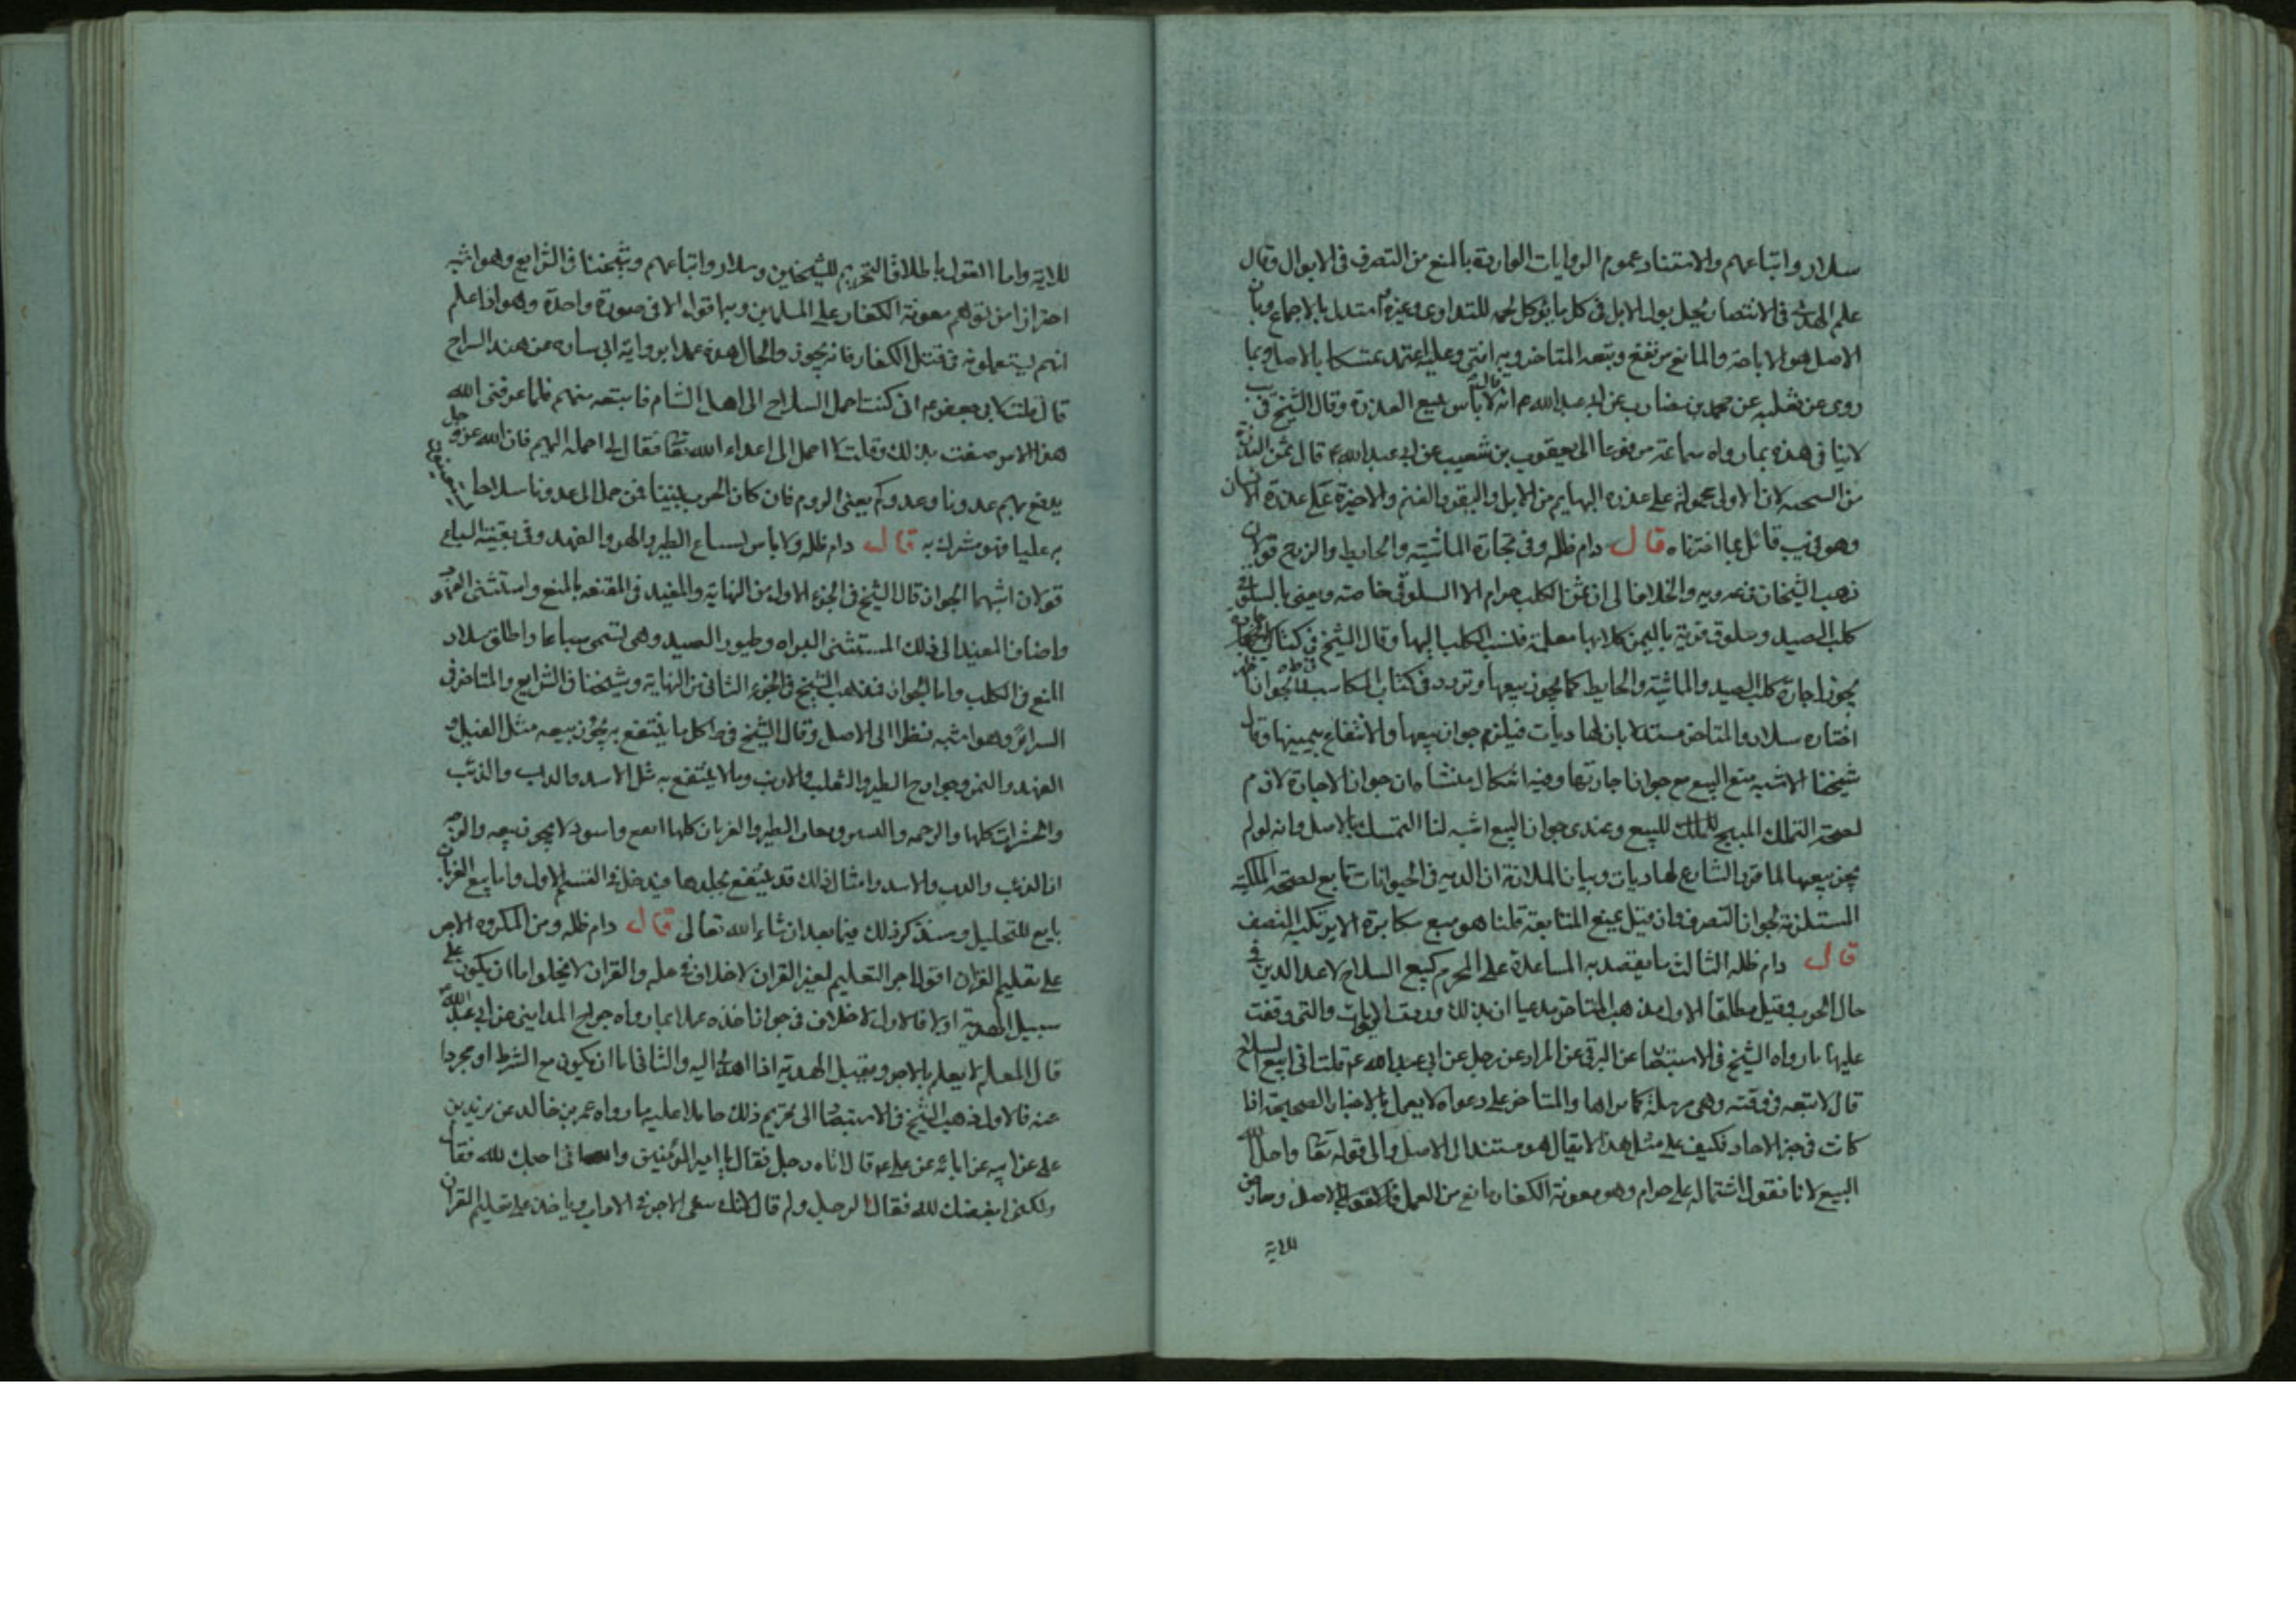 سلار واتباعهم والاستناد عموم الروايات الواردة بالمنع من التصرف فى الابوال وقال
علم الهدى فى الانتصار يحل بول الابل فى كل ما يؤكل لحمه للتداوى وغيره استدلالا بالاجماع وبان
الاصل هو الاباحة والمانع مرتفع وتبعه المتاخر وبه افتى وعليه اعتمد تمسكا بالاصل وبما
روى عن ثعلبه عن محمد بن مضارب عن ابى عبد الله ع انه قال لا باس ببيع العذرة وقال الشيخ فى يب
لا ينافى هذه بما رواه سماعة مرفوعا الى يعقوب بن شعيب عن ابى عبد الله ع قال ثمن العذرة
من السحت لان الاولى محمولة على عذرة البهايم من الابل والبقر والغنم والاخيرة على عذرة الانسان
وهو فى يب قائل بما اخترناه قال دام ظله وفى اجارة الماشية والحايط والزرع قولان
ذهب الشيخان فى يه ويه والخلاف الى ان ثمن الكلب حرام الا السلوقى خاصة ويعنى بالسلوقى
كلب الصيد وسلوق قرية باليمن كلابها معلمة فنسب الكلب اليها وقال الشيخ فى كتاب الاجارة
يجوز اجارة كلب الصيد والماشية والحايط كما يجوز بيعها وتردد فى كتاب المكاسب فى ط والجواز
اختاره سلار والمتاخر مستدلا بان لها ديات فيلزم جواز بيعها والانتفاع بثمنها وقال
شيخنا الاشبه منع البيع مع جواز اجارتها وفيه اشكال منشاه ان جواز الاجارة لازم
لصحة التملك المبيح للملك للبيع وعندى جواز البيع اشبه لنا التمسك بالاصل وانه لو لم
يجز بيعها لما قرر الشارع لها ديات وبيان الملازمة ان الديه فى الحيوانات تابع لصحة الملكية
المستلزمة لجواز التصرف فان قيل بمنع المتابعة قلنا هو منع مكابرة لا يرتكبه المنصف
قال دام ظله الثالث ما يقصد به المساعدة على المحرم كبيع السلاح لاعداء الدين فى
حال الحرب وقيل مطلقا الاول مذهب المتاخر مدعيا ان بذلك وردت الروايات والتى وقفت
عليها ما رواه الشيخ فى الاستبصار عن البرقى عن السراد عن رجل عن ابى عبد الله ع قلت انى ابيع السلاح
قال لا تبعه فى فتنه وهى مرسلة كما تراها والمتاخر على دعواه لا يعمل بالاخبار الصحيحة اذا
كانت فى حيز الاحاد فكيف على مثل هذا لا يقال هو مستند الى الاصل والى قوله تعا واحل الله
البيع لانا نقول اشتماله على حرام وهو معونة الكفار مانع من العمل بالاصل ومخصص
للاية
للاية واما القول باطلاق التحريم للشيخين وسلار واتباعهم وشيخنا فى الشرايع وهو اشبه
احترازا من توهم معونة الكفار على المسلمين وبها قواه الا فى صورة واحدة وهو اذا علم
انهم يستعملونه فى قتل الكفار فانه يجوز والحال هذه عملا برواية ابى ساره عن هند السراج
قال قلت لابى جعفر ع انى كنت احمل السلاح الى اهل الشام فابيعه منهم فلما عرفنى الله
هذا الامر ضقت بذلك وقلت لا احمل الى اعداء الله تعا فقال لى احمله اليهم فان الله عز وجل
يدفع بهم عدونا وعدوكم يعنى الروم فان كان الحرب بيننا فمن حمل الى عدونا سلاحا يستعينون
به علينا فهو مشرك به قال دام ظله ولا باس بسباع الطير والهر والفهد وفى بقية السباع
قولان اشبههما الجواز قال الشيخ فى الجزء الاول من النهاية والمفيد فى المقنعه بالمنع واستثنى الفهود
واضاف المفيد الى ذلك المستثنى البزاه وطيور الصيد وهى تسمى سباعا واطلق سلار
المنع فى الكلب واما الجواز فذهب الشيخ فى الجزء الثانى من النهاية وشيخنا فى الشرايع والمتاخر فى
السرائر وهو اشبه نظرا الى الاصل وقال الشيخ فى ط كل ما ينتفع به يجوز بيعه مثل الفيل و
الفهد والنمر وجوارح الطير والثعلب والارنب وما لا ينتفع به مثل الاسد والدب والذئب
والحشرات كلها والرخمه والنسر وبغاث الطير والغربان كلها ابقع واسود لا يجوز بيعه والوجه
ان الذئب والدب والاسد وامثال ذلك قد ينتفع بجلدها فيدخل فى القسم الاول واما بيع الغربان
تابع للتحليل وسنذكر ذلك فيما بعد ان شاء الله تعالى قال دام ظله ومن المكروه الاجر
على تعليم القران اقول اجر التعليم لغير القران لا خلاف فى حله والقران لا يخلو اما ان يكون على
سبيل الهدية او لا فالاول لا خلاف فى جواز اخذه عملا بما رواه جراح المداينى عن ابى عبد الله ع
قال المعلم لا يعلم بالاجر ويقبل الهدية اذا اهدى اليه والثانى اما ان يكون مع الشرط او مجردا
عنه فالاول ذهب الشيخ فى الاستبصار الى تحريم ذلك حاملا عليه ما رواه عمر بن خالد عن زيد بن
على عن ابيه عن ابائه عن على ع قال اتاه رجل فقال يا امير المؤمنين والله انى احبك لله فقال
ولكنى ابغضك لله فقال الرجل ولم قال لانك تبغى الاجر فى الاذان وتاخذ على تعليم القران